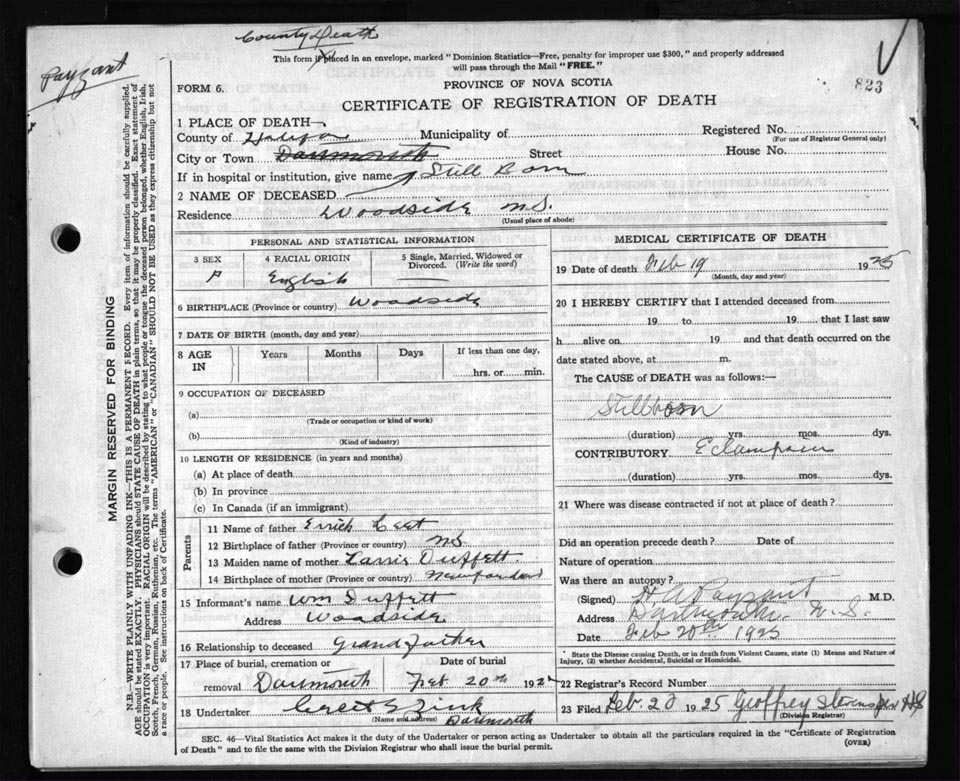 County Death
Payzant
This form if placed in an envelope, marked "Dominion Statistics—Free, penalty for improper use $300," and properly addressed
will pass through the Mail "FREE."
823
FORM 6.
PROVINCE OF NOVA SCOTIA
CERTIFICATE OF REGISTRATION OF DEATH
1 PLACE OF DEATH—
County of Halifax Municipality of Registered No.
(For use of Registrar General only)
City or Town Dartmouth Street House No.
If in hospital or institution, give name Still Born
2 NAME OF DECEASED
Residence Woodside N.S.
(Usual place of abode)
PERSONAL AND STATISTICAL INFORMATION
3 SEX 4 RACIAL ORIGIN 5 Single, Married, Widowed or Divorced. (Write the word)
F English
6 BIRTHPLACE (Province or country) Woodside
7 DATE OF BIRTH (month, day and year)
8 AGE IN Years Months Days If less than one day,
hrs. or min.
9 OCCUPATION OF DECEASED
(a)
(Trade or occupation or kind of work)
(b)
(Kind of industry)
10 LENGTH OF RESIDENCE (in years and months)
(a) At place of death
(b) In province
(c) In Canada (if an immigrant)
Parents
11 Name of father
12 Birthplace of father (Province or country) N.S.
13 Maiden name of mother Duffett
14 Birthplace of mother (Province or country)
15 Informant's name Wm Duffett
Address Woodside
16 Relationship to deceased Grand Father
17 Place of burial, cremation or Date of burial
removal Dartmouth Feb 20th 1925
18 Undertaker Zink
(Name and address) Dartmouth
MEDICAL CERTIFICATE OF DEATH
19 Date of death Feb 19 1925
(Month, day and year)
20 I HEREBY CERTIFY that I attended deceased from
19 to 19 that I last saw
h alive on 19 and that death occurred on the
date stated above, at m.
The CAUSE of DEATH was as follows:—
Stillborn
(duration) yrs. mos. dys.
CONTRIBUTORY Eclampsia
(duration) yrs. mos. dys.
21 Where was disease contracted if not at place of death?
Did an operation precede death? Date of
Nature of operation
Was there an autopsy?
(Signed) H A Payzant M.D.
Address Dartmouth. N.S.
Date Feb 20th 1925
* State the Disease causing Death, or in death from Violent Causes, state (1) Means and Nature of
Injury, (2) whether Accidental, Suicidal or Homicidal.
22 Registrar's Record Number
23 Filed Feb. 20 1925 Geoffrey Stevens per
(Division Registrar)
SEC. 46—Vital Statistics Act makes it the duty of the Undertaker or person acting as Undertaker to obtain all the particulars required in the "Certificate of Registration
of Death" and to file the same with the Division Registrar who shall issue the burial permit.
(OVER)
MARGIN RESERVED FOR BINDING
N.B.—WRITE PLAINLY WITH UNFADING INK—THIS IS A PERMANENT RECORD. Every item of information should be carefully supplied.
AGE should be stated EXACTLY. PHYSICIANS should STATE CAUSE OF DEATH in plain terms, so that it may be properly classified. Exact statement of
OCCUPATION is very important. RACIAL ORIGIN will be described by stating to what people or tongue the deceased person belonged, whether English, Irish,
Scotch, French, German, Russian, Ruthenian, etc. The terms "AMERICAN" or "CANADIAN" SHOULD NOT BE USED as they express citizenship but not
a race or people. See instructions on back of Certificate.